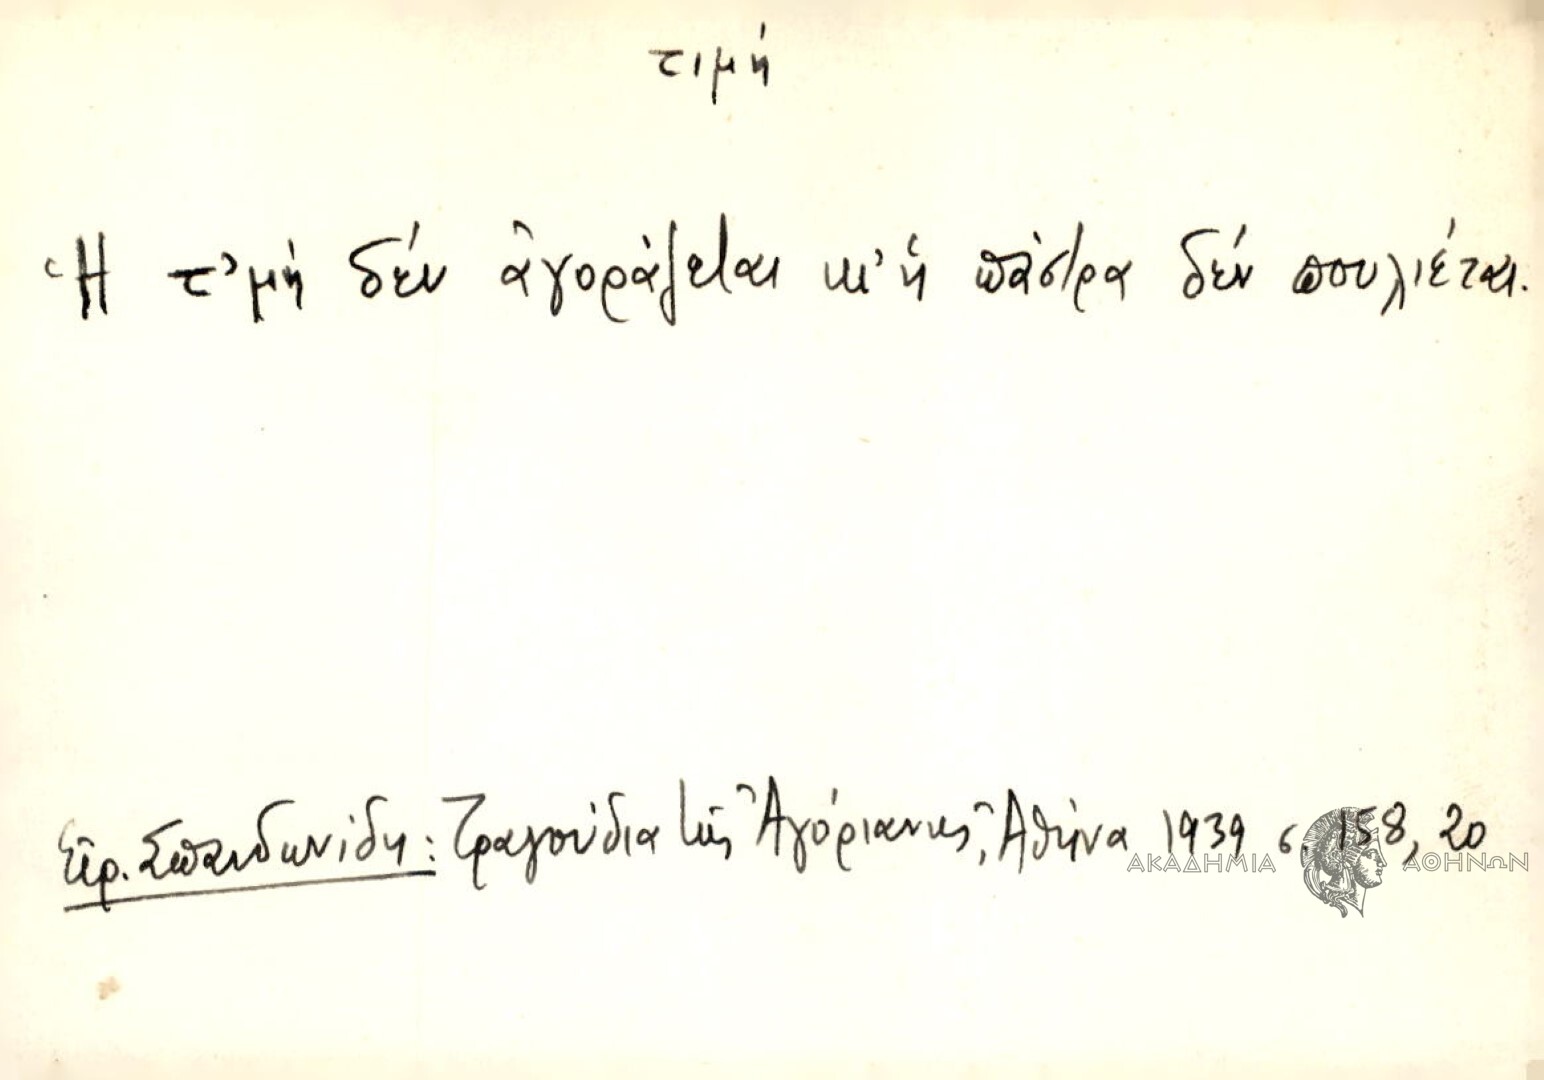 τιμή
Ἡ τ'μή δέν ἀγοράζεται κι' ἡ πάστρα δέν πουλιέται.
Εἰρ. Σπανδωνίδη: Τραγούδια τῆς Ἀγόριανης, Ἀθήνα 1939 σ. 158, 20
ΑΚΑΔΗΜΙΑ ΑΘΗΝΩΝ